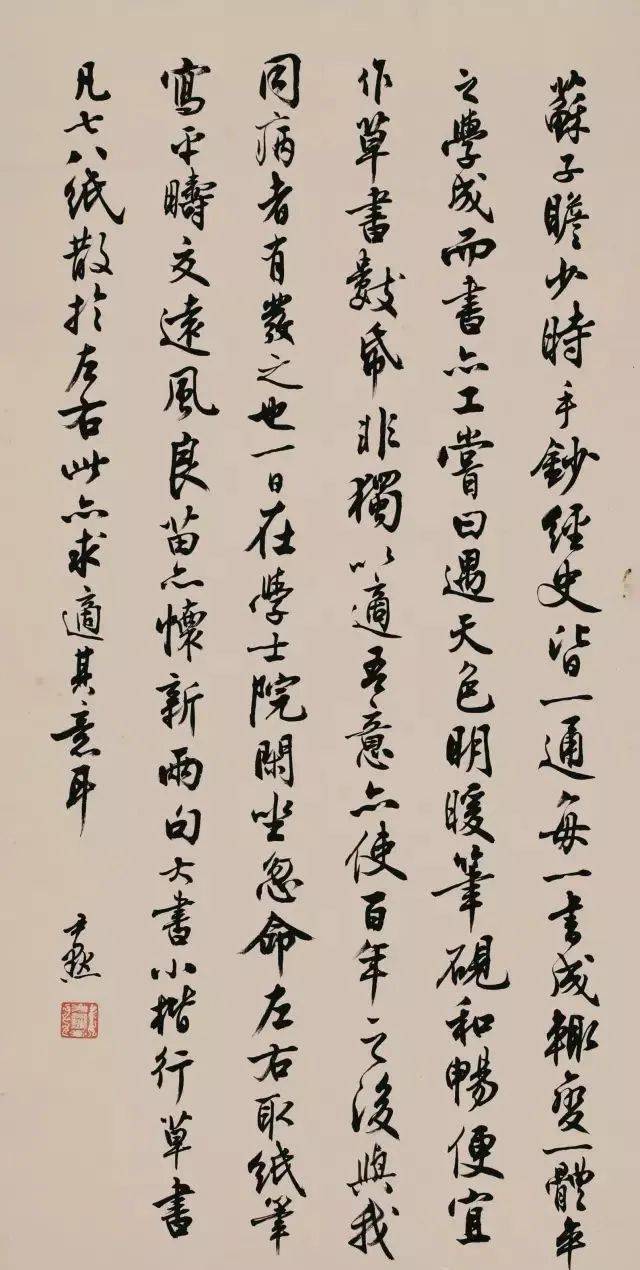 蘇子瞻少時手鈔經史皆一通每一書成輒變一體卒
之學成而書亦工嘗曰遇天色明暖筆硯和暢便宜
作草書數紙非獨以適吾意亦使百年之後與我
同病者有發之也一日在學士院閑坐忽命左右取紙筆
寫平疇交遠風良苗亦懷新兩句大書小楷行草書
凡七八紙散於左右此亦求適其意耳
尹默